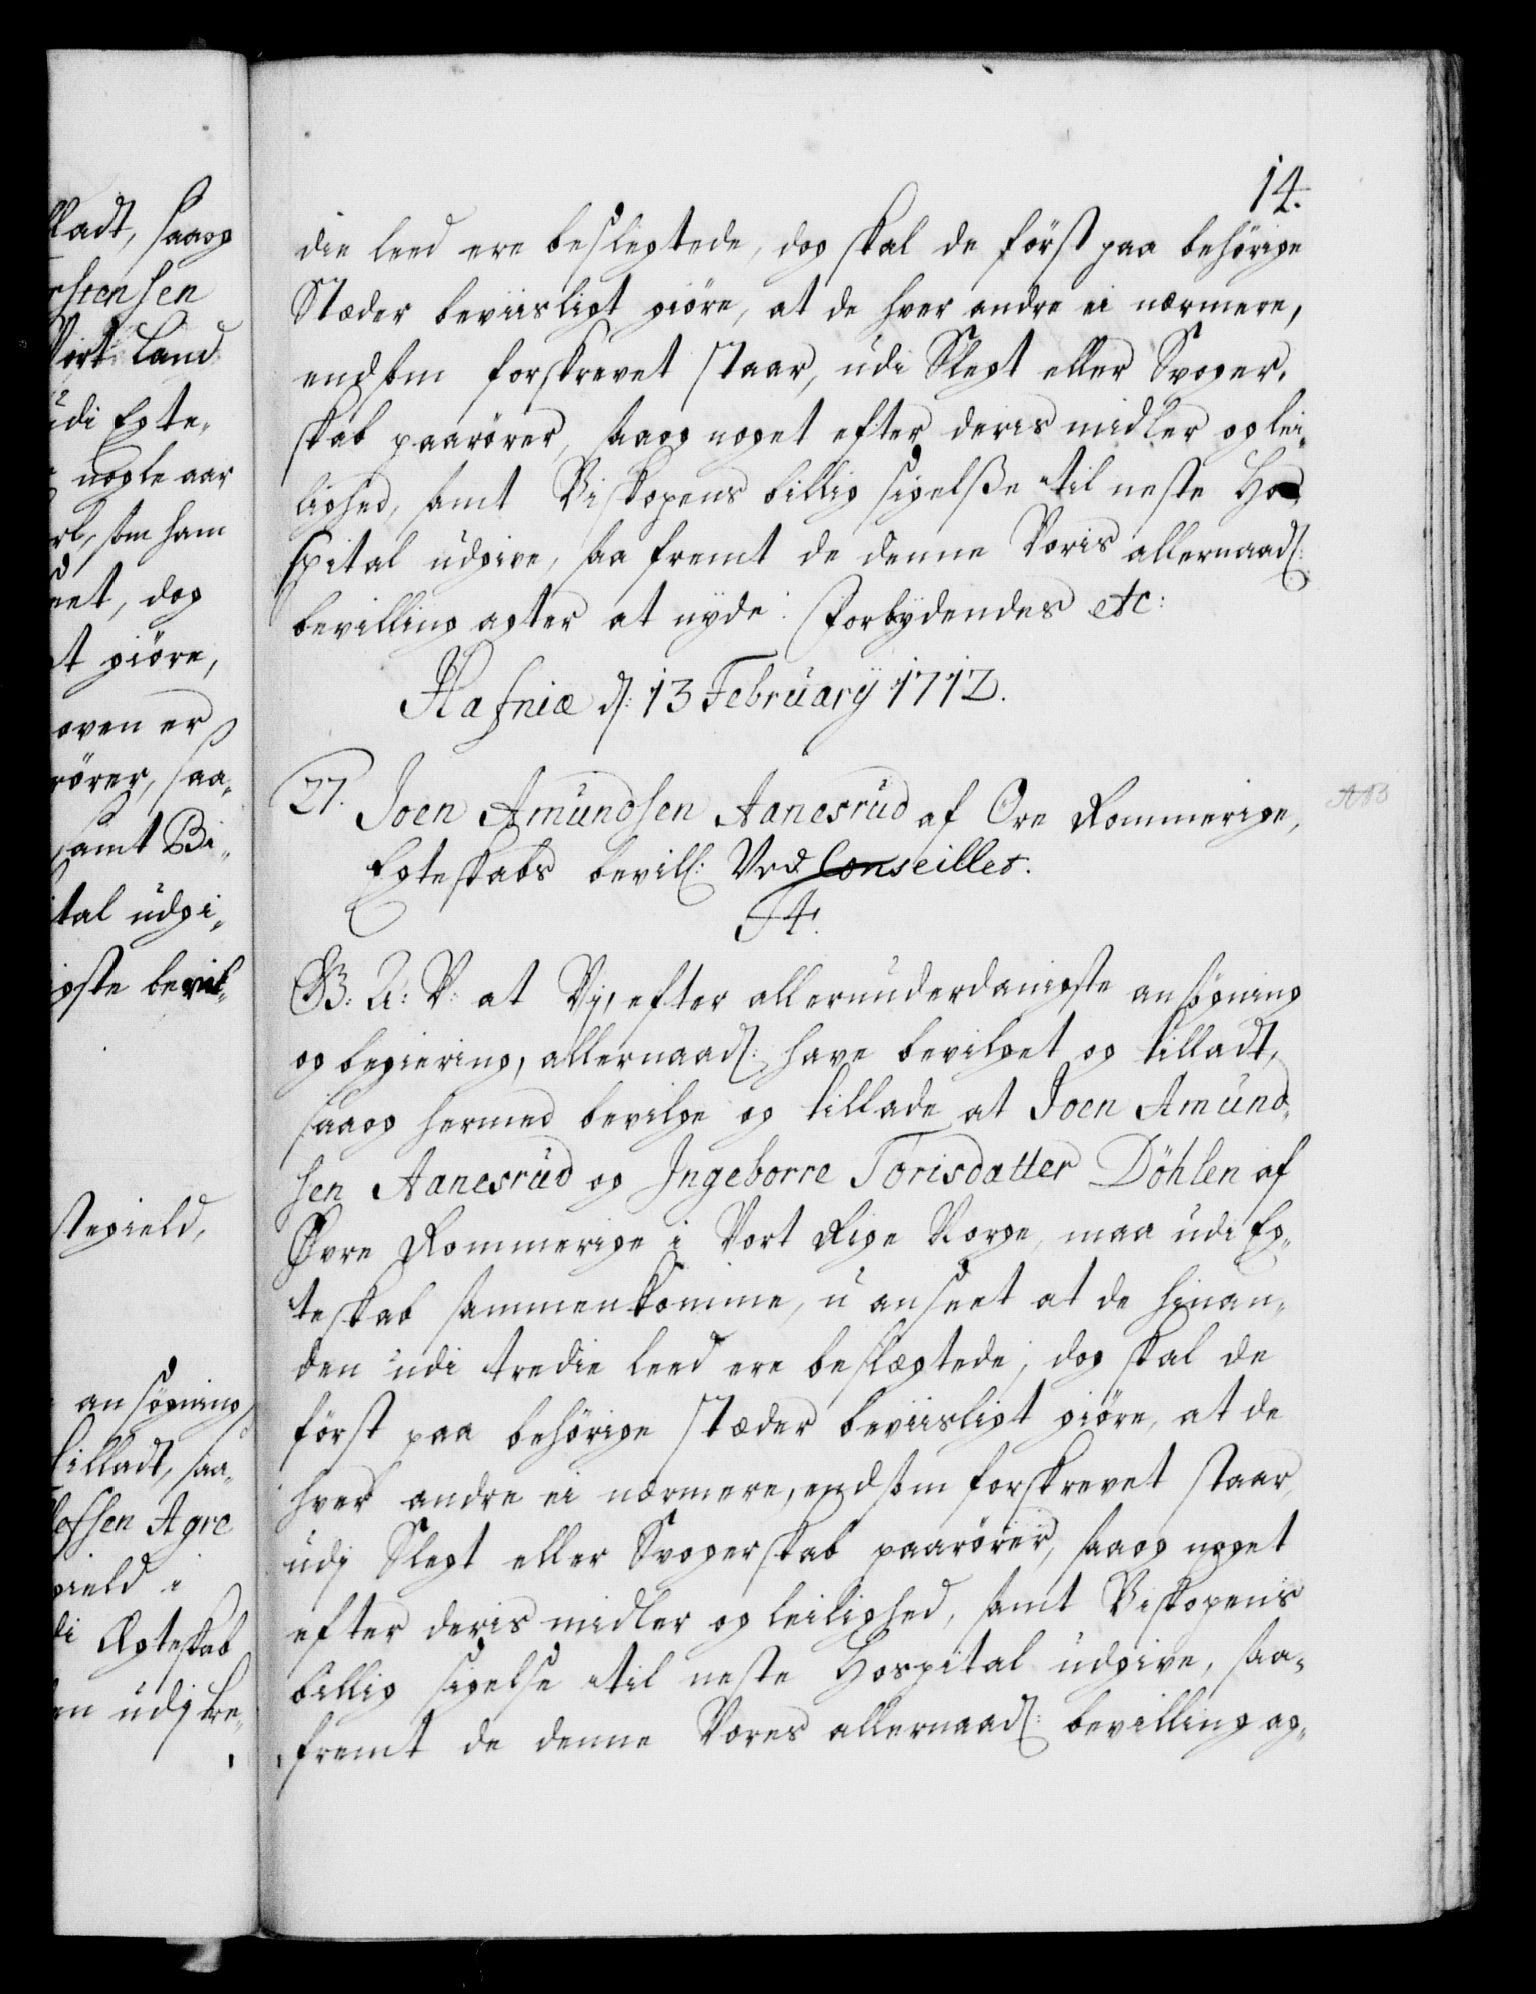 ladt, saaog
rstensen
Vort Land
udi Egte„
nogle aar
rl, som ham
eet, dog
t giöre,
oven er
rörer, saa„
samt Bi„
ital udgi„
igste bevil„
stegield,
ansögning
tilladt, saa„
lofsen Agre
gield i
di Ægteskab
en udj tre„
14.
die leed ere beslegtede, dog skal de först paa behörige
Stæder beviisligt giöre, at de hver andre ei nærmere,
end som forskrevet staar, udi Slegt eller Svoger„
skab paarörer, saaog noget efter deris midler og lei„
lighed, samt Biskopens billig sigelße til neste Ho
spital udgive, saa fremt de denne Voris allernaad:
bevilling agter at nyde. Forbydendes etc:
Hafniæ d: 13 February 1712.
27. Joen Amundsen Aanesrud af Ore Rommerige,
Egteskabs bevill: Ved Conseillet.
F4.
G: A: V: at Vj, efter allerunderdanigste ansögning
og begiering, allernaad: have bevilget og tilladt,
saaog hermed bevilge og tillade at Joen Amund„
sen Aanesrud og Ingeborre Torisdatter Döhlen af
Øvre Rommerige i Vort Rige Norge, maa udi Eg„
teskab sammenkomme, u anseet at de hinan„
den udi tredie leed ere beslægtede, dog skal de
först paa behörige stæder beviisligt giöre, at de
hver andre ei nærmere, end som forskrevet staar,
udj Slegt eller Svogerskab paarörer, saaog noget
efter deris midler og leilighed, samt Biskopens
billig sigelse til neste Hospital udgive, saa„
fremt de denne Vores allernaad: bevilling ag„